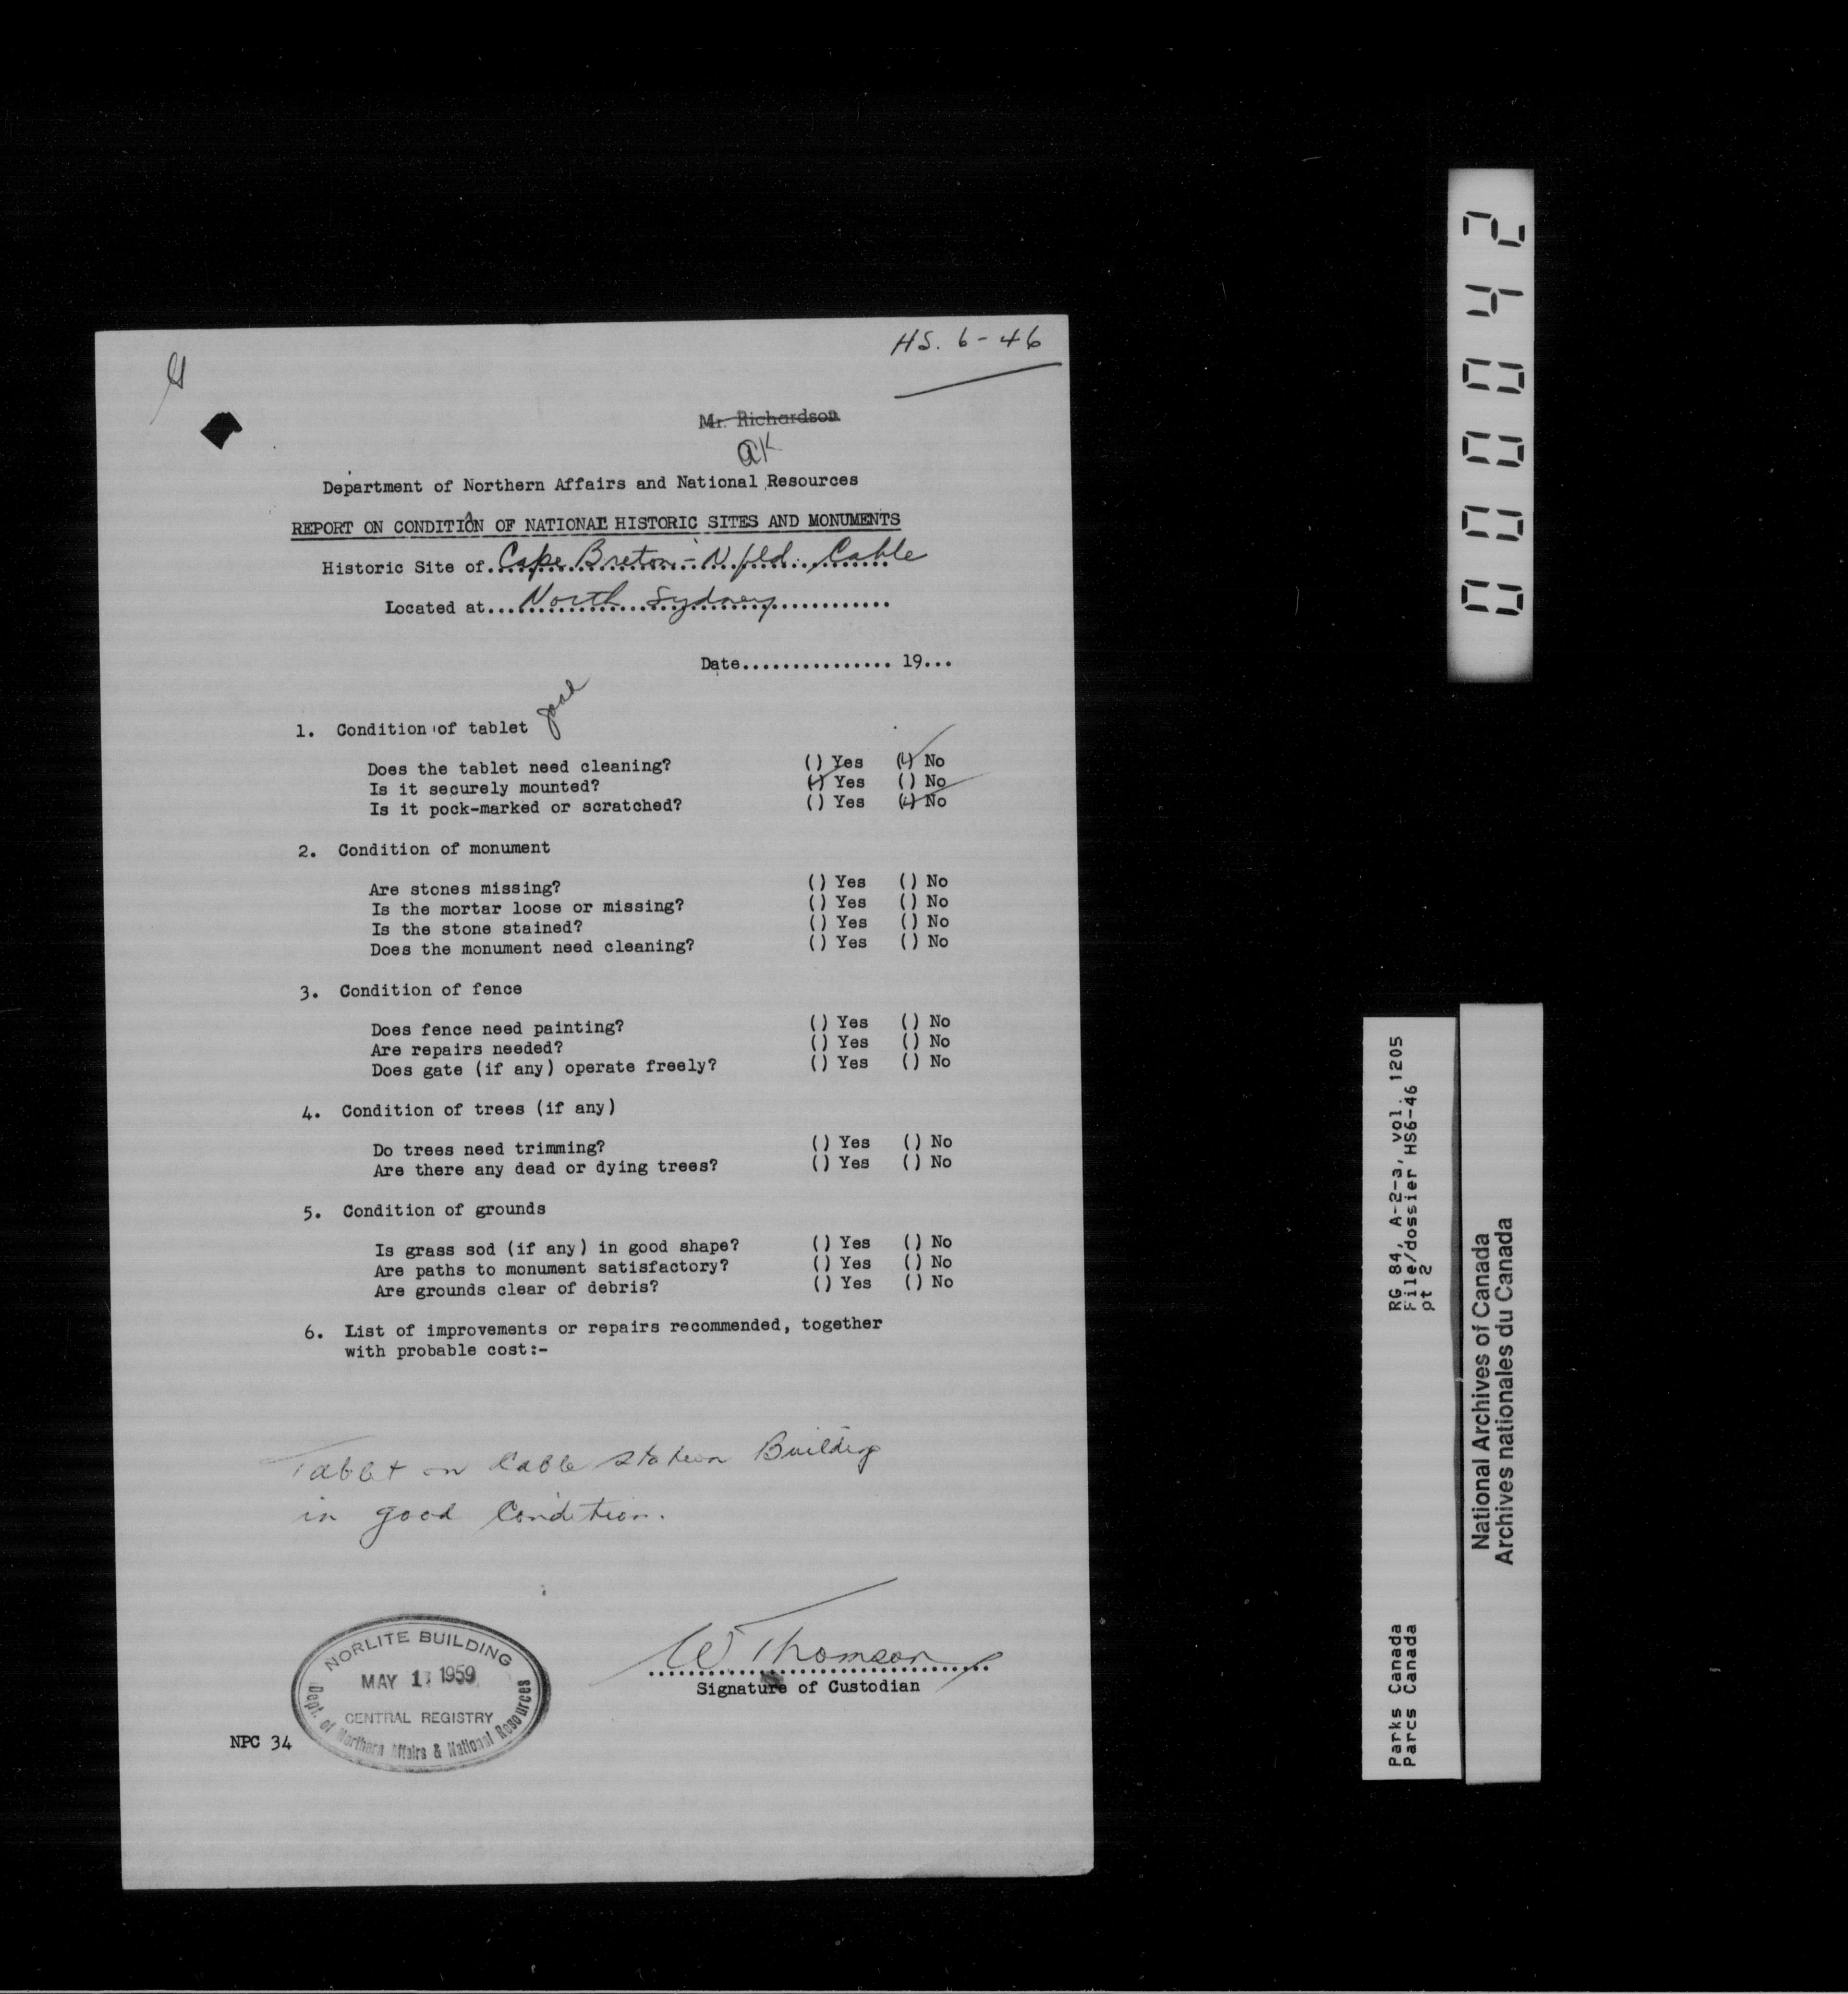 HS. 6-46
Mr. Richardson
aK
Department of Northern Affairs and National Resources
REPORT ON CONDITION OF NATIONAL HISTORIC SITES AND MONUMENTS
Historic Site of..Cape Breton - Nfld. Cable
Located at...North Sydney
Date............... 19...
1. Condition of tablet good
Does the tablet need cleaning? () Yes (✓) No
Is it securely mounted? (✓) Yes () No
Is it pock-marked or scratched? () Yes (✓) No
2. Condition of monument
Are stones missing? () Yes () No
Is the mortar loose or missing? () Yes () No
Is the stone stained? () Yes () No
Does the monument need cleaning? () Yes () No
3. Condition of fence
Does fence need painting? () Yes () No
Are repairs needed? () Yes () No
Does gate (if any) operate freely? () Yes () No
4. Condition of trees (if any)
Do trees need trimming? () Yes () No
Are there any dead or dying trees? () Yes () No
5. Condition of grounds
Is grass sod (if any) in good shape? () Yes () No
Are paths to monument satisfactory? () Yes () No
Are grounds clear of debris? () Yes () No
6. List of improvements or repairs recommended, together
with probable cost:-
Tablet on Cable Station Building
in good Condition.
W Thomson
Signature of Custodian
NORLITE BUILDING
MAY 1 1959
CENTRAL REGISTRY
Dept. of Northern Affairs & National Resources
NPC 34
000042
RG 84, A-2-3, vol. 1205
File/dossier HS6-46
pt 2
Parks Canada
Parcs Canada
National Archives of Canada
Archives nationales du Canada